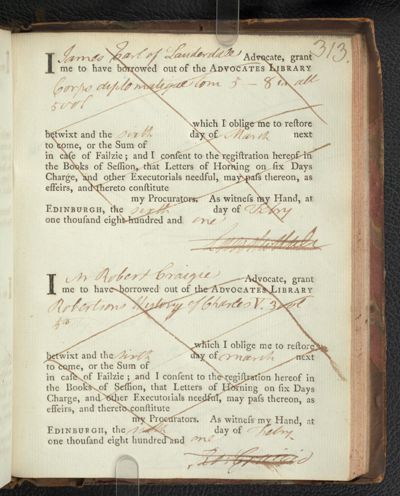 313.
I James Earl of Lauderdale Advocate, grant
me to have borrowed out of the ADVOCATES LIBRARY
Corps diplomatique Tom 5 – 8 in all
5 vol
which I oblige me to reſtore
betwixt and the sixth day of March next
to come, or the Sum of
in caſe of Failzie; and I conſent to the regiſtration hereof in
the Books of Seſſion, that Letters of Horning on ſix Days
Charge, and other Executorials needful, may paſs thereon, as
effeirs, and thereto conſtitute
my Procurators. As witneſs my Hand, at
EDINBURGH, the sixth day of Febry
one thouſand eight hundred and one
I Mr Robert Craigie Advocate, grant
me to have borrowed out of the ADVOCATES LIBRARY
Robertsons History of Charles V. 3 vol
which I oblige me to reſtore
betwixt and the sixth day of march next
to come, or the Sum of
in caſe of Failzie; and I conſent to the regiſtration hereof in
the Books of Seſſion, that Letters of Horning on ſix Days
Charge, and other Executorials needful, may paſs thereon, as
effeirs, and thereto conſtitute
my Procurators. As witneſs my Hand, at
EDINBURGH, the sixth day of Febry
one thouſand eight hundred and one
Ro Craigie